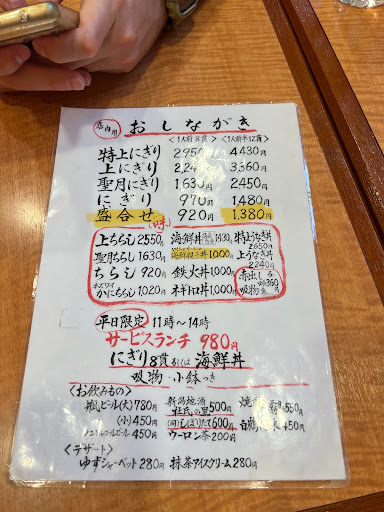 店内用 おしながき
<1人前8貫> <1人前半12貫>
特上にぎり 2950 4430円
上にぎり 2,24 3,360円
聖月にぎり 1,630円 2450円
にぎり 970円 1,480円
盛合せ 920円 1,380円
上ちらし 2550円 海鮮丼 1430円 特上うなぎ丼 2650円
聖月ちらし 1630円 1,000円 上うなぎ丼 2240円
ちらし 920円 鉄火丼 1,000円 赤出し
かにちらし 1,020円 ネギトロ丼 1,000円 吸物 各
平日限定 11時〜14時
サービスランチ 980円
にぎり8貫もしくは海鮮丼
吸物・小鉢つき
<お飲みもの>
瓶ビール(大) 780円 新潟地酒 杜氏の里 500円 550円
(小) 450円 (同)しぼりたて 600円 450円
ノンアルコールビール 450円 ウーロン茶 200円
<デザート>
ゆずシャーベット 280円 抹茶アイスクリーム 280円